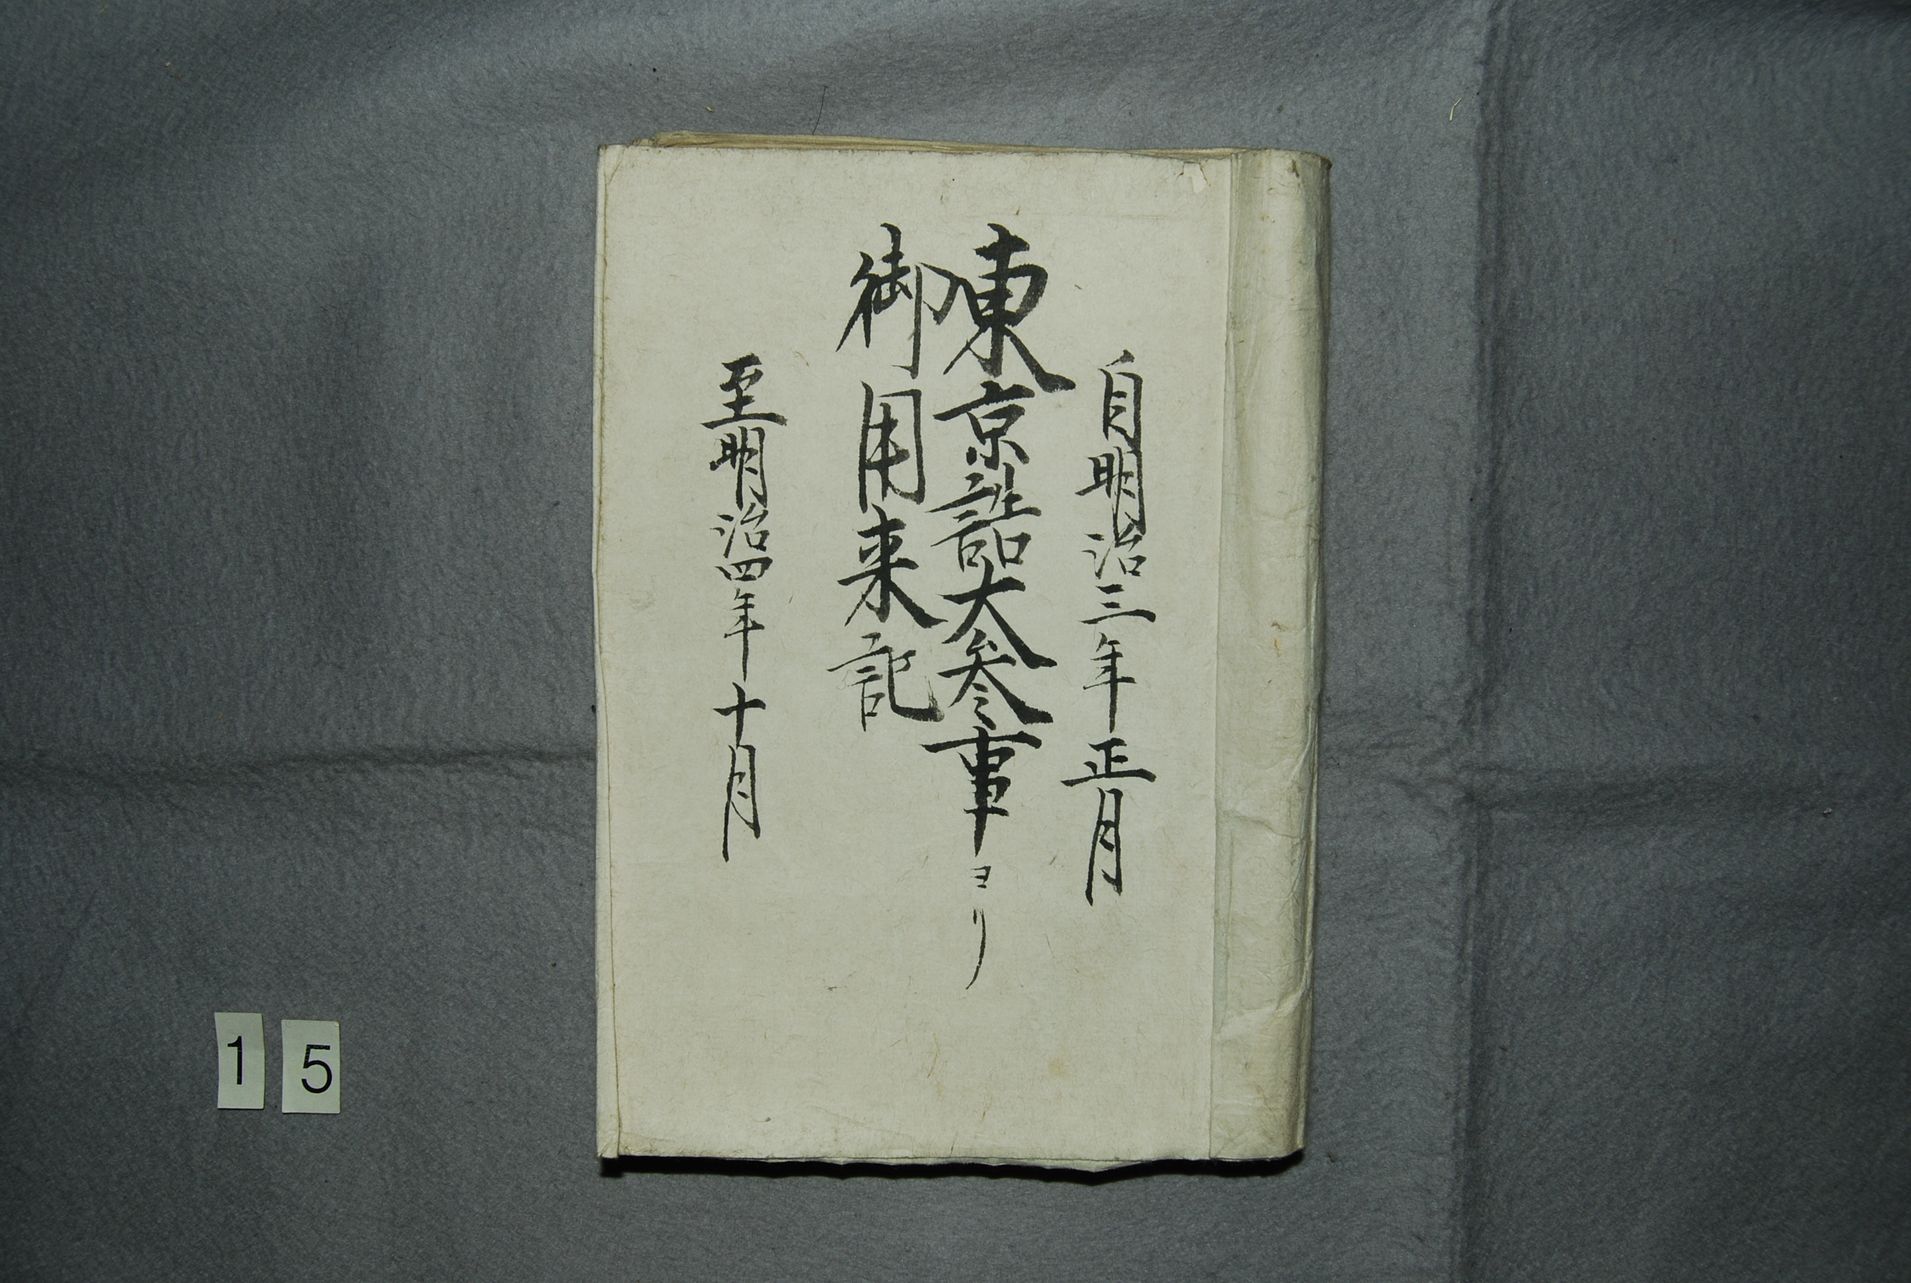 自明治三年正月
東京詰大参事ヨリ
御用来記
至明治四年十月
15